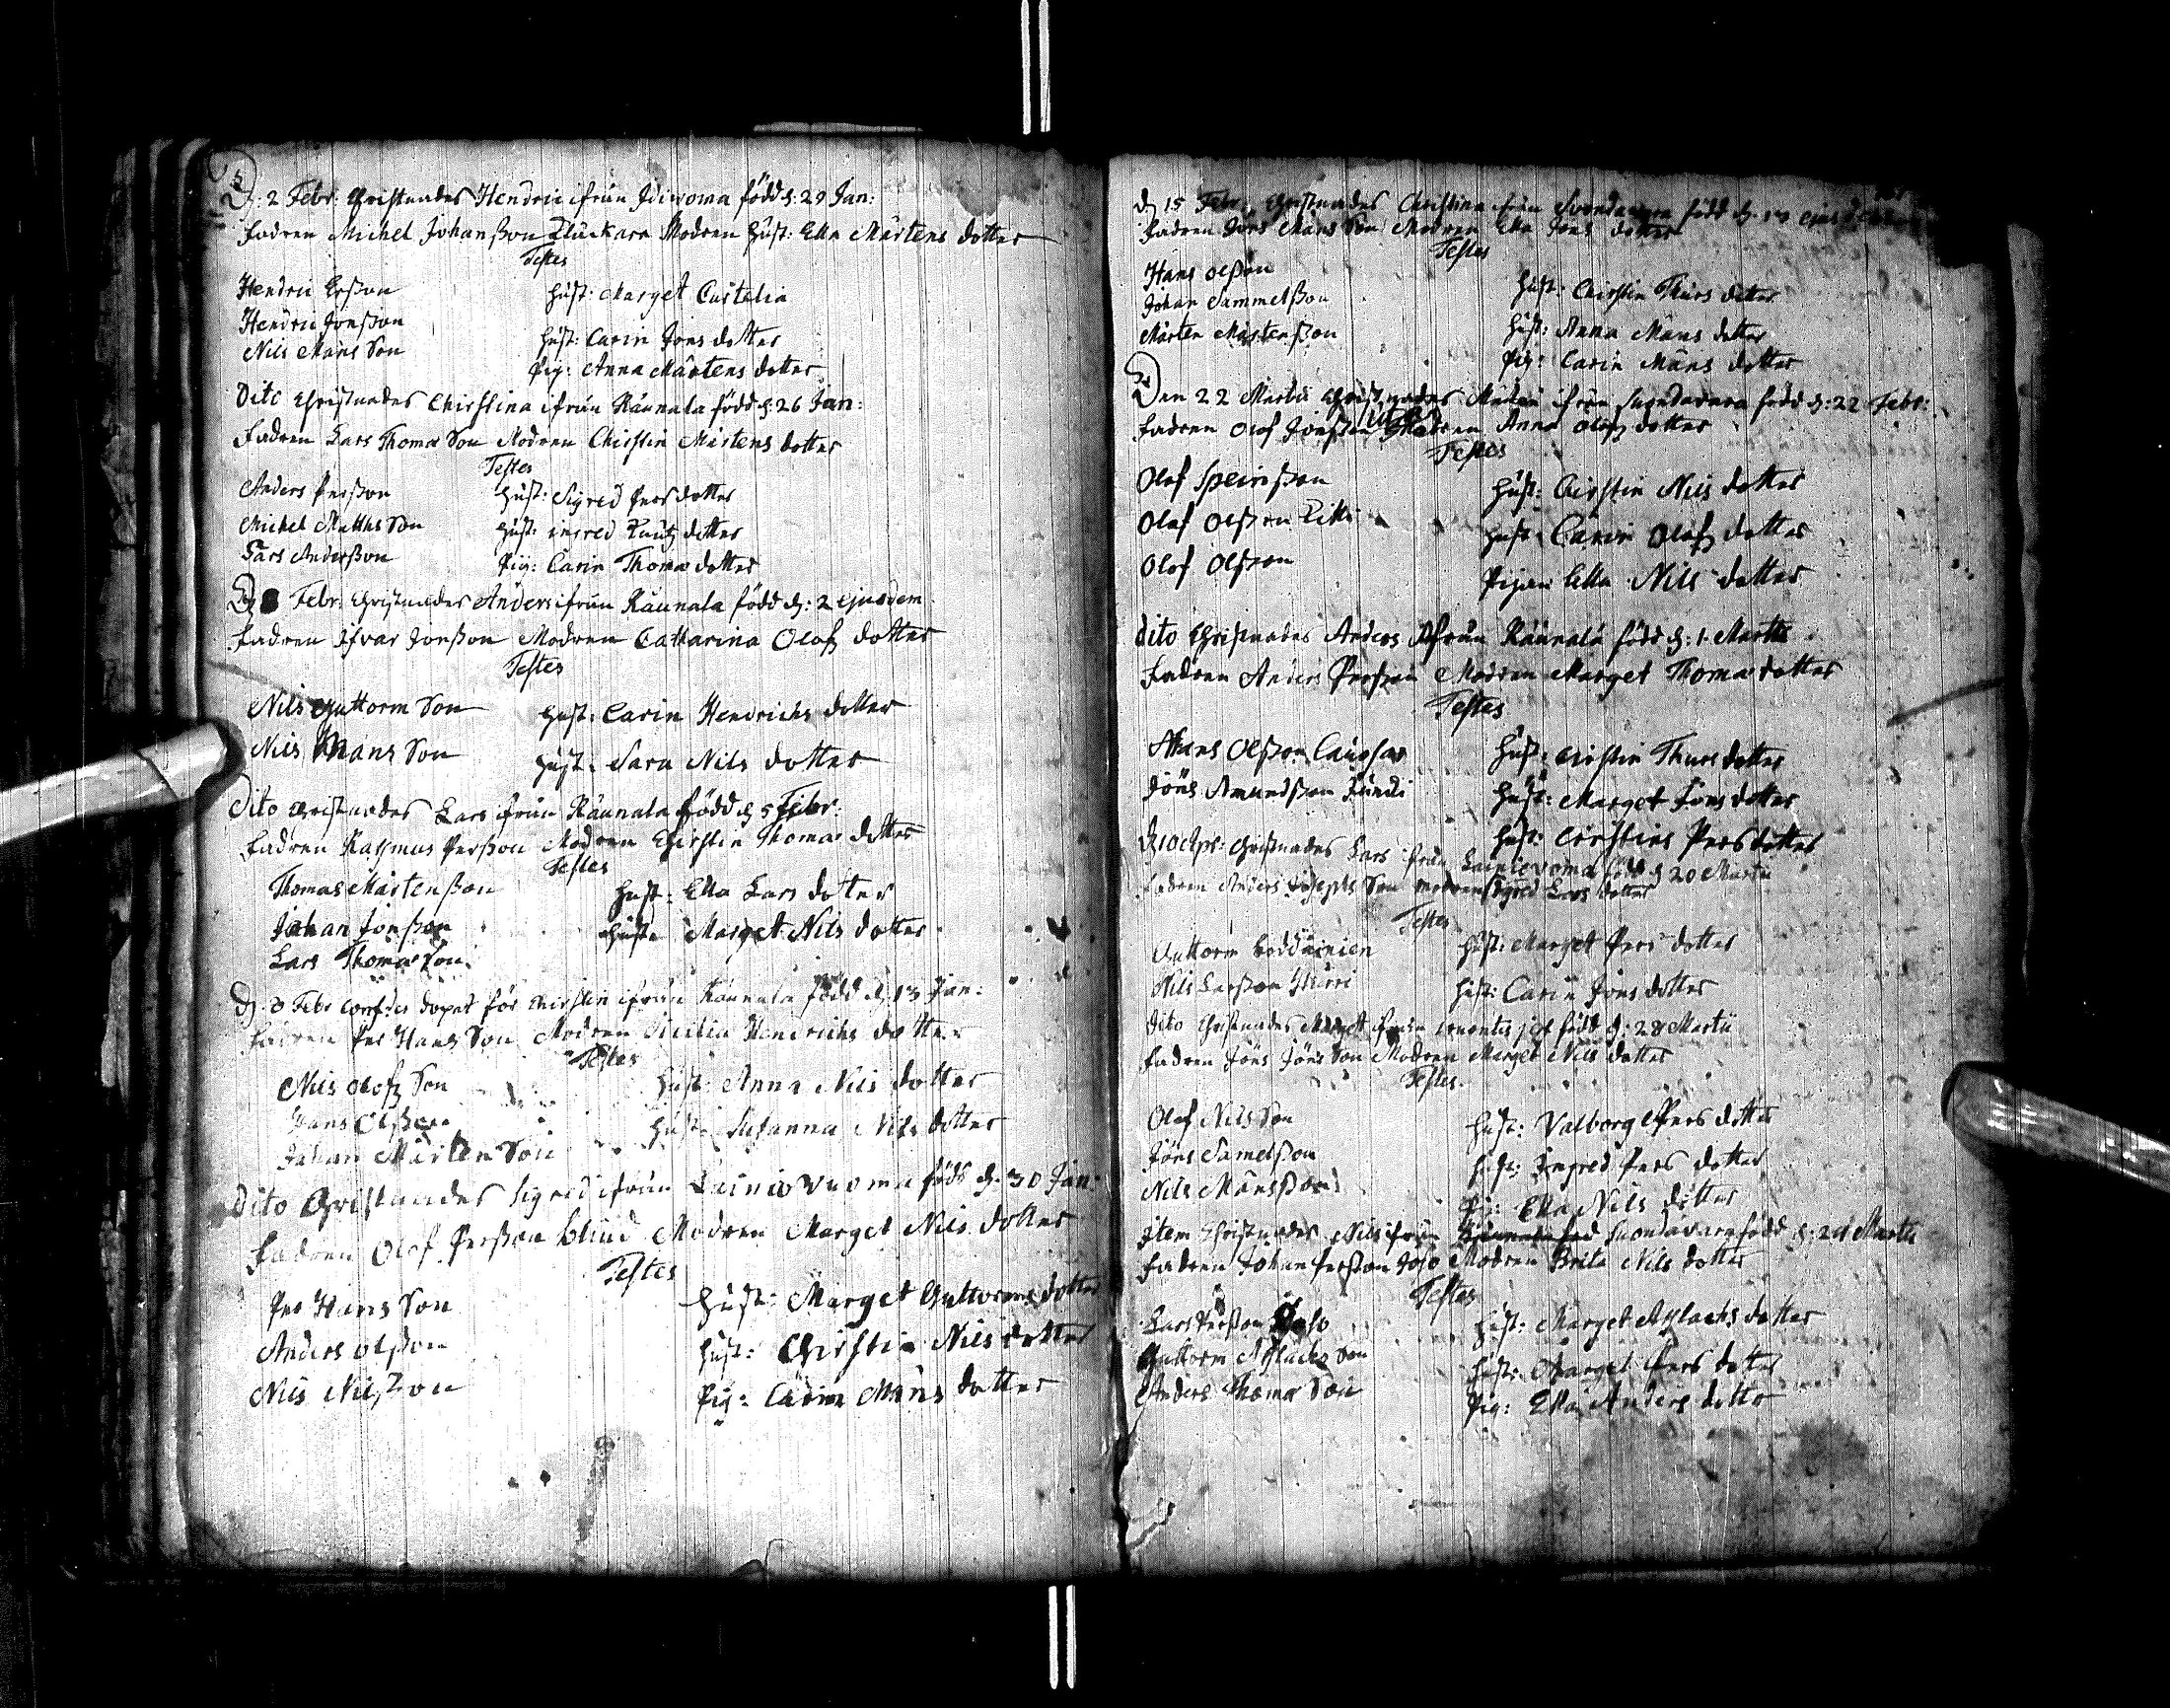 D: 2 Febr: Christnades Hendric ifrån Idiwoma född d: 29 Jan:
Fadren Michel Johanßon Modren Hust: Ella Mårtens dotter
Testes
Hendric Erßon Hust: Marget Castelia
Hendric Jonßon Hust: Carin Jons dotter
Nils Måns Son Pig: Anna Mårtens dotter
Dito Christnades Chirstina ifrån Råunala född d: 26 Jan:
Fadren Lars Thomæ Son Modren Chirstin Mårtens dotter
Testes
Anders Perßon Hust: Sigred Pers dotter
Michel Matths Son Hust: ingred dotter
Lars Anderßon Pig: Carin Thomæ dotter
D 8 Febr: Christnades Anders ifrån Råunala född d: 2 ejusdem
Fadren Ifvar Jonßon Modren Catharina Olofz dotter
Testes
Nils Guttorm Son Hust: Carin Hendrichs dotter
Nils Måns Son Hust: Sara Nils dotter
Dito Christnades Lars ifrån Råunala född d 5 Febr:
Fadren Rasmus Perßon Modren Chirstin Thomæ dotter
Testes
Thomas Mårtenßon Hust: Ella Lars dotter
Johan Jonßon Hust: Marget Nils dotter
Lars Thomæ Son
D: 8 Febr döpet för Chirstin ifrån Råunala född d: 13 Jan:
Fadren Per Hans Son Modren Cicilia Hendrichs dotter
Testes
Nils Olofz Son Hust: Anna Nils dotter
Hans Olßon Hust: Susanna Nils dotter
Johan Mårten Son
Dito Christnades Sigred ifrån Lainiovuoma född d. 30 Jan:
Fadren Olof Perßon blind Modren Marget Nils dotter
Testes
Per Hans Son Hust: Marget Guttorms dotter
Anders Olßon Hust: Chirstin Nils dotter
Nils Nilßon Pig: Carin Måns dotter
d 15 Febr: Christnades Christina ifrån född d. 13
Fadren Jons Måns Son Modren Ella Jons dotter
Testes
Hans Olßon Hust: Chirstin Thurs dotter
Johan Sammelßon Hust: Anna Måns dotter
Mårten Mårtenßon Pig: Carin Måns dotter
Den 22 Martii Christnades ifrån Suondavara född d: 22 Febr:
Fadren Olof Jonßon Modren Anna Olofz dotter
Testes
Olof Speinßon Hust: Chirstin Nils dotter
Olof Olßon Hust: Carin Olofz dotter
Olof Olßon Pigan Ella Nils dotter
dito Christnades Anders ifrån Råunala född d: 1 Martii
Fadren Anders Perßon Modren Marget Thomæ dotter
Testes
Hans Olßon Hust: Chirstin Thurs dotter
Jöns Amundßon Hust: Marget Jons dotter
Hust: Chirstins Pers dotter
D 10 Apr: Christnades Lars ifrån Lainiovoma född d 20 Martii
Fadren Anders Josephs Son modren Sigred Lars dotter
Testes
Guttorm Hust: Marget Pers dotter
Nils Larßon Hust: Carin Jons dotter
dito Christnades Marget ifrån född d: 28 Martii
Fadren Jöns Jöns Son Modren Marget Nils dotter
Testes
Olof Nils Son Hust: Valborg Pers dotter
Jöns Samelßon Hust: Ingred Pers dotter
Nils Månsßon Pig: Ella Nils dotter
item Christnades Nils ifrån Suondavara född d: 24 Martii
Fadren Johan Perßon Joso Modren Brita Nils dotter
Testes
Lars Perßon Joso Hust: Marget Aslachs dotter
Guttorm Aslachs Son Hust: Marget Pers dotter
Anders Thomæ Son Pig: Ella Anders dotter